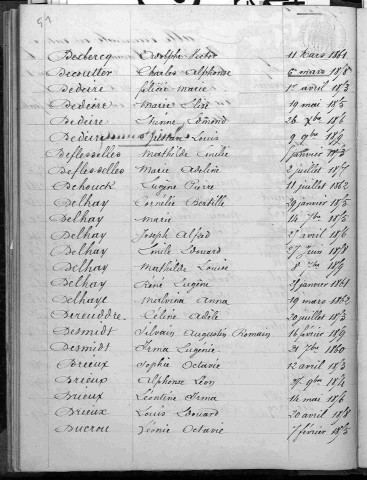 51
Declercq Adolphe Victor 11 Mars 1861
Decoutter Charles Alphonse 6 mars 1878
Dedeire marie 1er avril 1873
Dedeire Marie Elise 19 mai 1875
Dedeire Etienne Edmond 26 Xbre 1876
Dedeire Louis 9 9bre 1879
Deflesselles Mathilde Emilie 1 janvier 1873
Deflesselles Marie Adeline 2 juillet 1871
Dehouck Eugène Pierre 11 juillet 1862
Delhay Cornélie Bertille 29 janvier 1875
Delhay Marie 14 7bre 1875
Delhay Joseph Alfred 21 avril 1876
Delhay Emile Edouard 27 Juin 1878
Delhay Mathilde Louise 8 7bre 1879
Delhay René Eugène 31 janvier 1861
Delhaye Malvina Anna 19 mars 1862
Dereuddre Céline Adèle 20 juillet 1873
Desmidt Silvain Augustin Romain 14 février 1879
Desmidt Irma Eugénie 21 7bre 1860
Drieux Sophie Octavie 12 avril 1873
Drieux Alphonse Léon 27 9bre 1874
Drieux Léontine Irma 14 mai 1876
Drieux Louis Edouard 20 avril 1878
Ducrou Léonie Octavie 7 février 1875